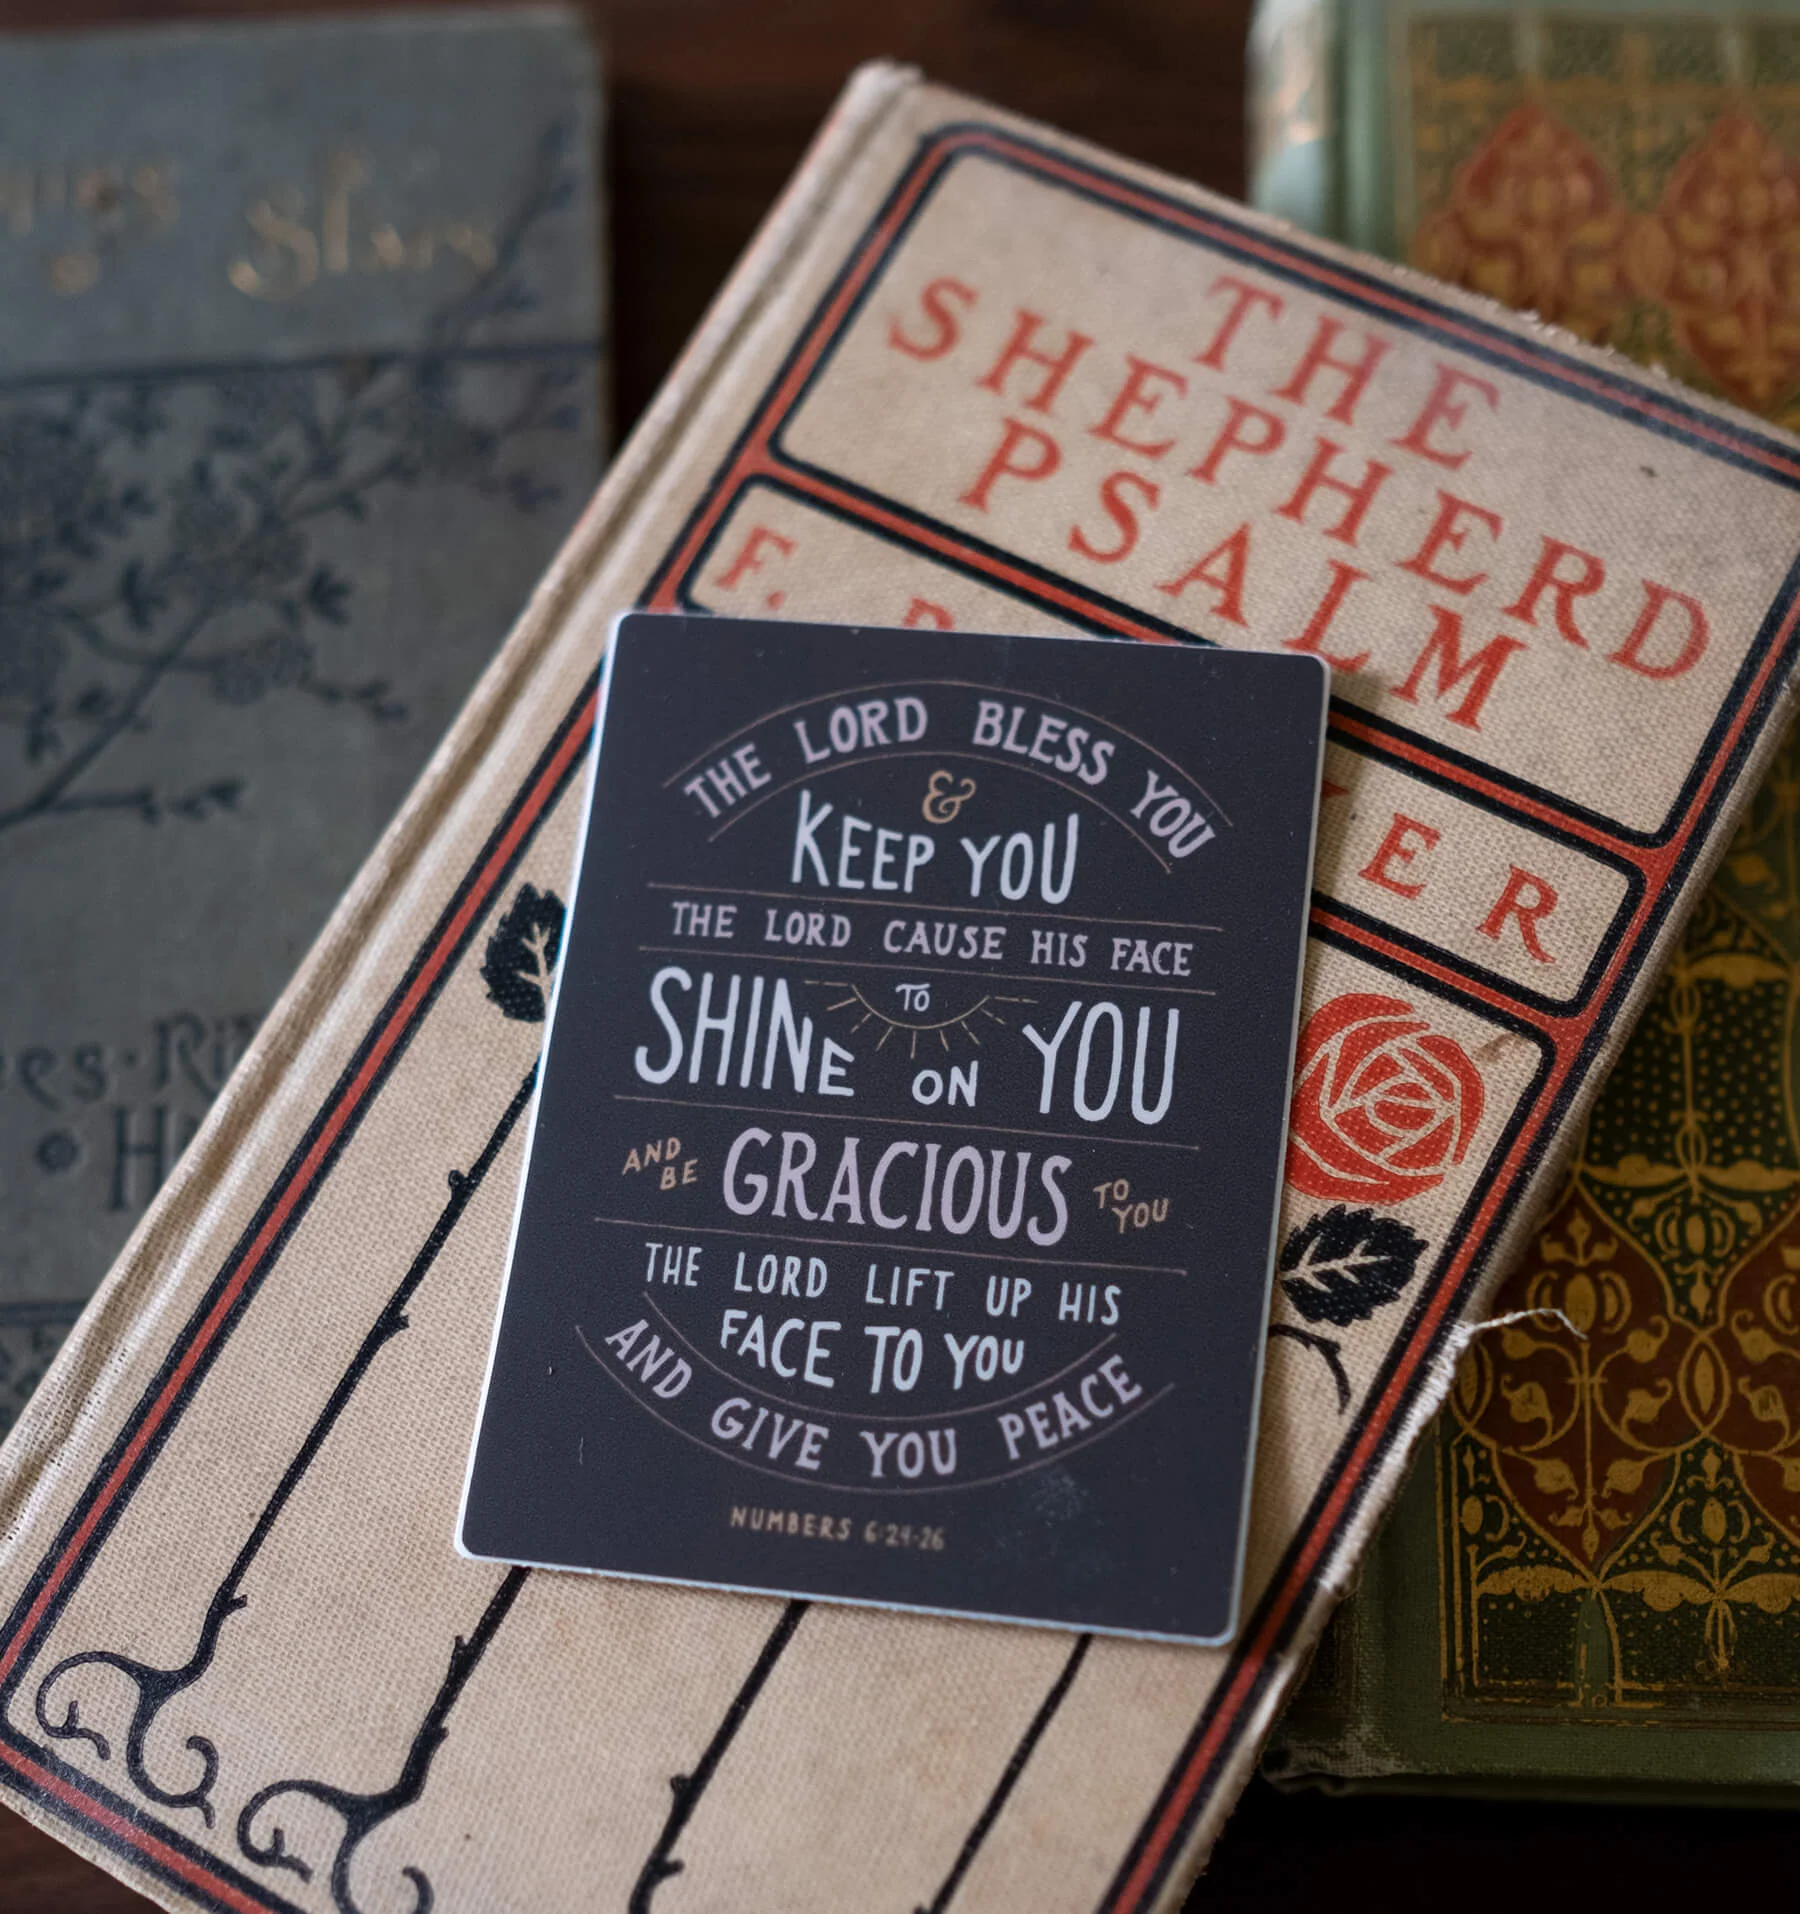 Stars
THE
SHEPHERD
PSALM
F. B. ER
THE LORD BLESS YOU
&
KEEP YOU
THE LORD CAUSE HIS FACE
TO
SHINE ON YOU
AND BE GRACIOUS TO YOU
THE LORD LIFT UP HIS
FACE TO YOU
AND GIVE YOU PEACE
NUMBERS 6:24-26